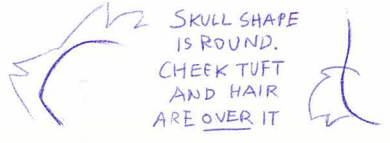 SKULL SHAPE
IS ROUND.
CHEEK TUFT
AND HAIR
ARE OVER IT